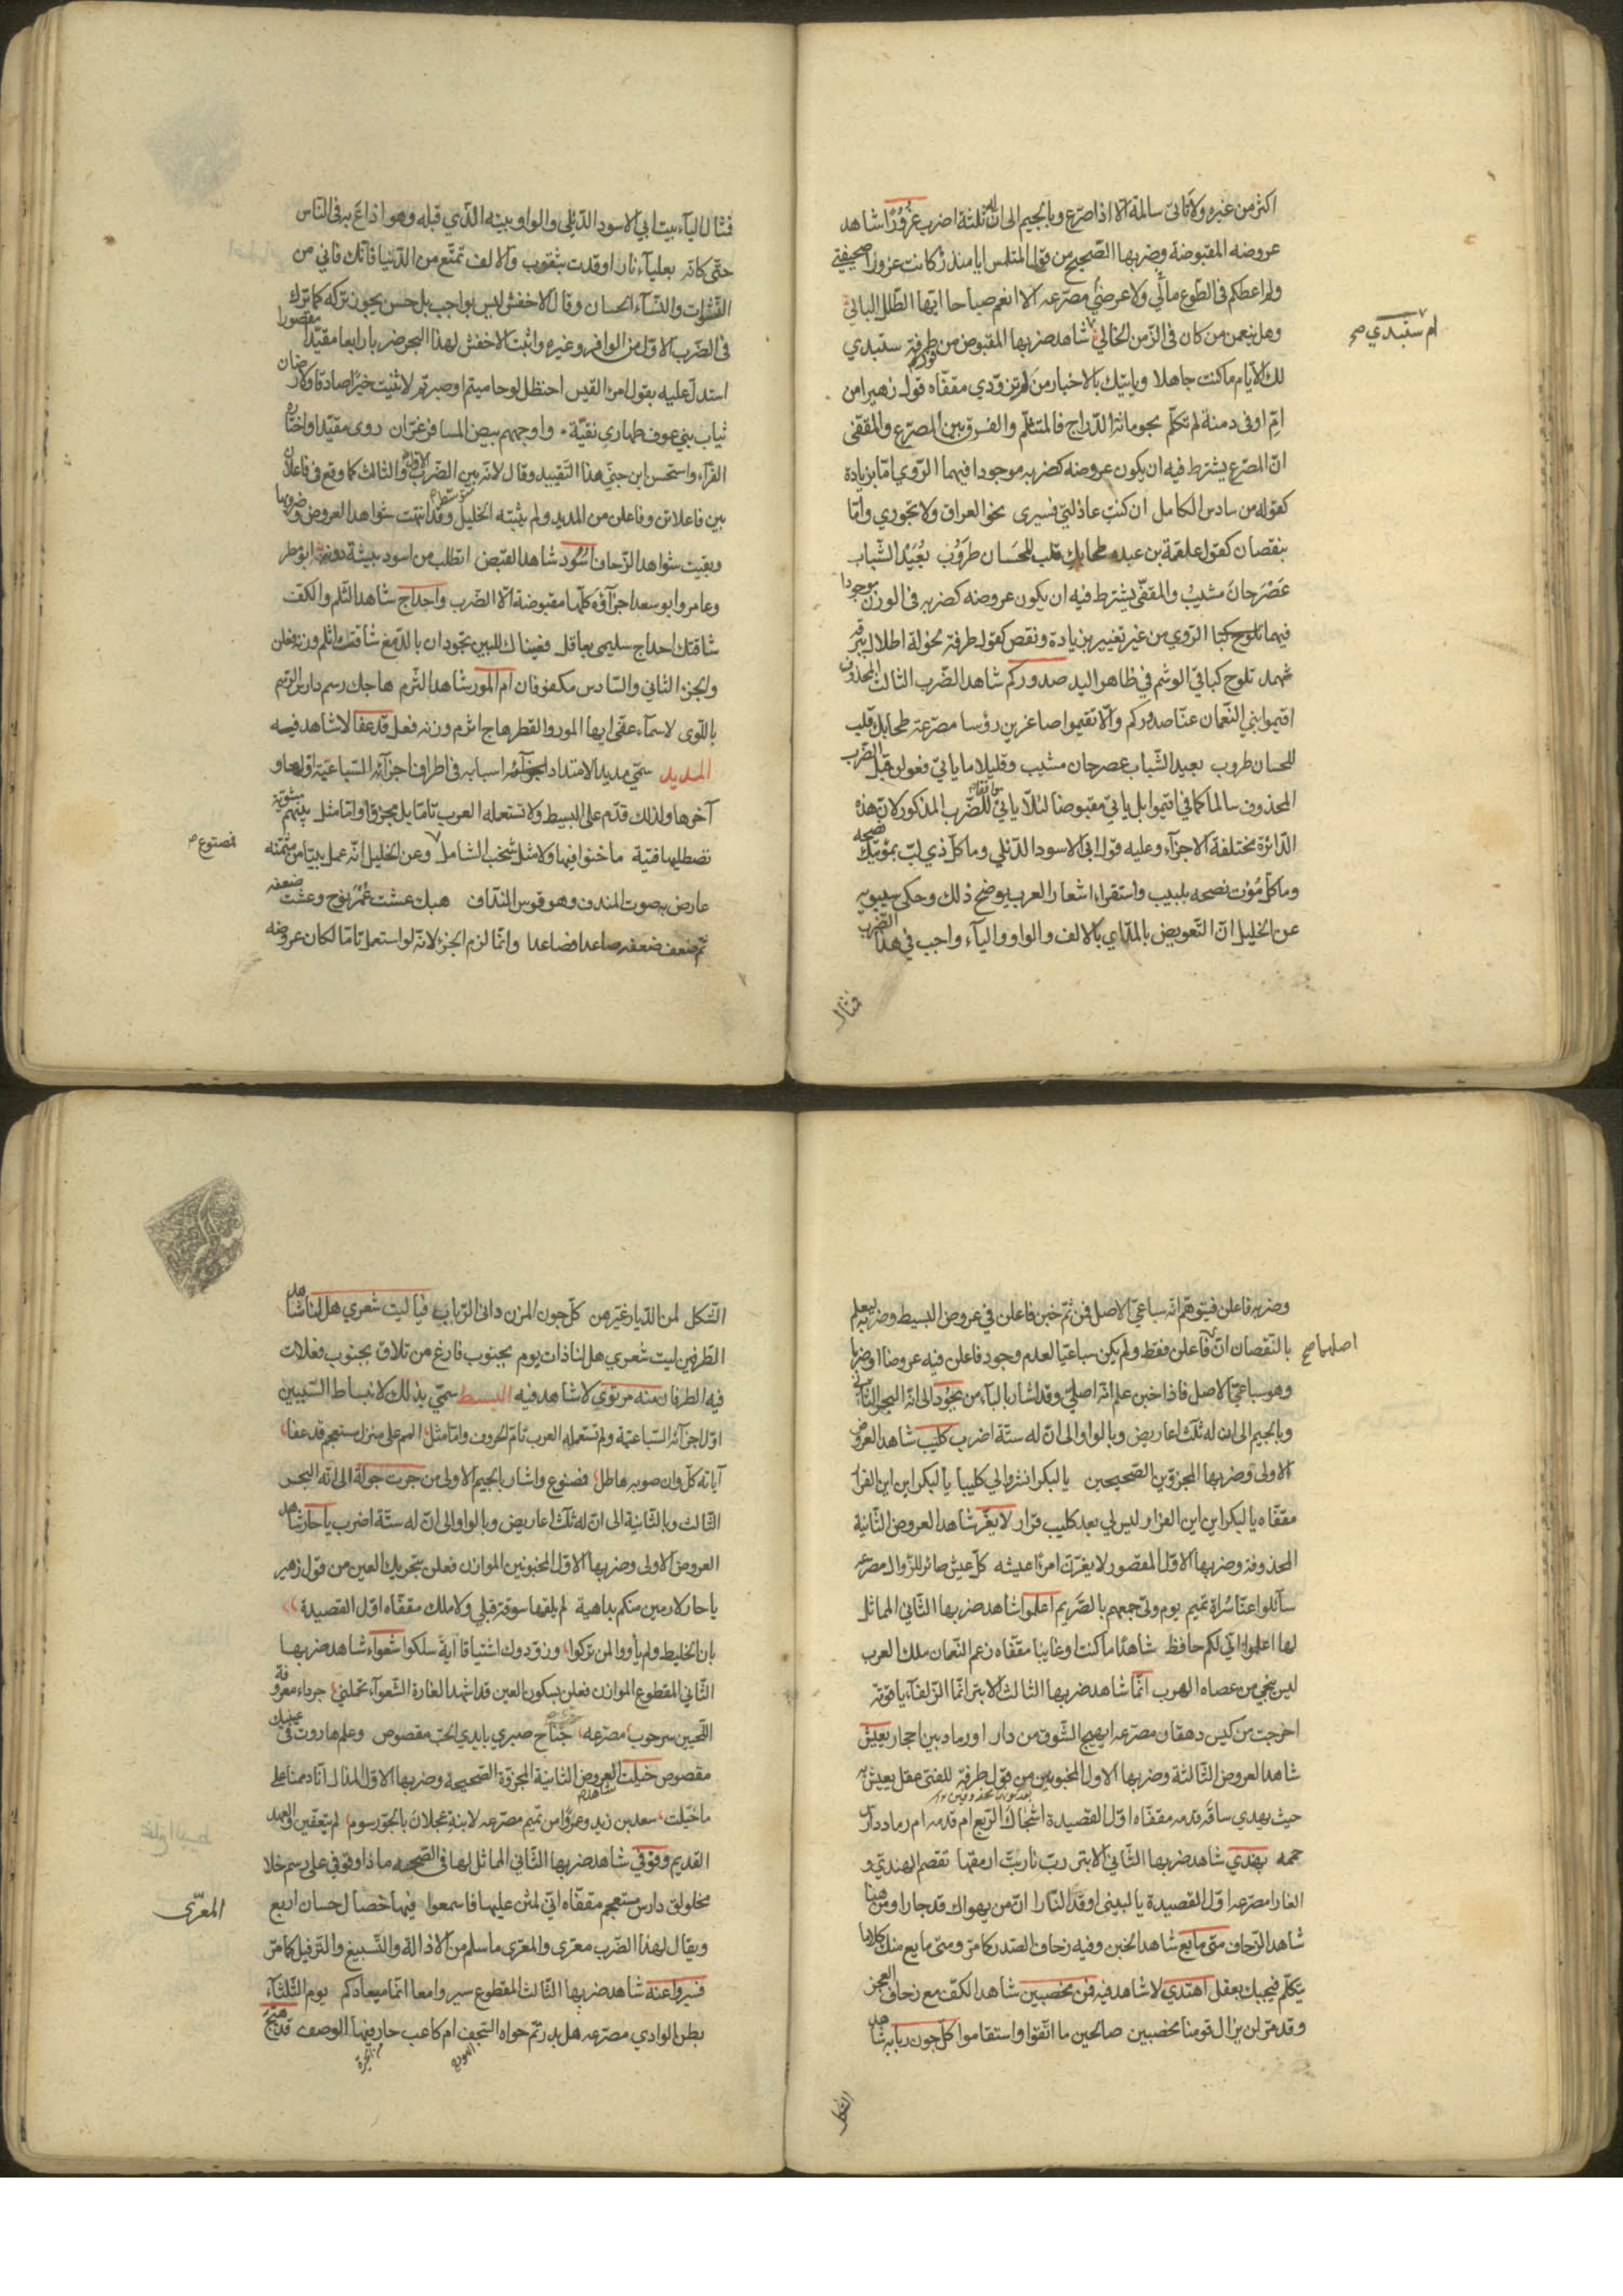 اكثر من غيره ولا تاتى سالمة الا اذا صرّع وبالجيم الى انّ له ثلثة اضرب غُرُورًا شاهد
عروضه المقبوضة وضربها الصّحيح من قول المتلمس ابا منذر كانت غرورا صحيفتي
ولم اعطكم فى الطوع مالي ولا عرضى مصرّعه الا انعم صباحا ايّها الطّلل البالي
وهل ينعمن من كان فى الزّمن الخالي شاهد ضربها المقبوض من قول طرفة ستبدي
ام ستبدي صح
لك الايّام ما كنت جاهلا وياتيك بالاخبار من لم تزوّدي مقفّاه قول زهير امن
امّ اوفى دمنة لم تكلّم بحومانة الدّراج فالمتثلّم والفرق بين المصرّع والمقفّى
انّ المصرّع يشترط فيه ان يكون عروضه كضربه موجودا فيهما الرّوي امّا بزيادة
كقوله من سادس الكامل ان كنتِ عاذلتي فسيرى نحو العراق ولا تجوري وامّا
بنقصان كقول علقمة بن عبده طحا بك قلب للحسان طروب بُعَيْد الشّباب
عَصْرَ حانَ مشيبُ والمقفّى يشترط فيه ان يكون عروضه كضربه فى الوزن موجودا
فيهما الرّوي من غير تغيير بزيادة ونقص كقول طرفة لخولة اطلال ببرقة
ثهمد تلوح كباقي الوشم في ظاهر اليد صدوركم شاهد الضّرب الثالث المحذوف
اقيموا بني النّعمان عنّا صدوركم والّا تقيموا صاغرين رؤسا مصرّعة طحا بك قلب
للحسان طروب بعيد الشّباب عصر حان مشيب وقليلا ما ياتي فعولن قبل الضّرب
المحذوف سالما كما فى اقيموا بل ياتي مقبوضا لئلّا ياتي للضّرب المذكور لانّ هذه
الدّائرة مختلفة الاجزآء وعليه قول ابى الاسود الدّئلي وما كلّ ذي لبّ بمؤتيك نصحه
وما كلّ مُؤت نصحه بلبيب واستقراء اشعار العرب يوضح ذلك وحكى سيبويه
عن الخليل انّ التّعويض بالمدّ اي بالالف والواو واليآء واجب في هذا الضّرب
فمثال
فمثال اليآء بيت ابي الاسود الدّئلى والواو بيته الّذي قبله وهو اذاع به فى النّاس
حتّى كانّه بعليآء نار اوقدت بثقوب والالف تمتّع من الدّنيا فانّك فاني من
النّشوات والنّسآء الحسان وقال الاخفش ليس بواجب بل حسن يجوز تركه كما ترك
فى الضّرب الاوّل من الوافر وغيره واثبت الاخفش لهذا البحر ضربا رابعا مقيّدا مقصورا
استدلّ عليه بقول امرئ القيس احنظل لو حاميتم او صبرتم لاثنيت خيرا صادقا ولارضان
ثياب بني عوف طهارى نقيّة واوجههم بيض المسافر غرّان روى مقيّدا واختاره
الفرّآء واستحسن ابن جنّي هذا التّقييد وقال لانّه بين الضّرب الاوّل والثالث كما وقع فى فاعلان
بين فاعلاتن وفاعلن من المديد ولم يثبته الخليل وقد انتهت شواهد العروض وضروبها
وبقيت شواهد الزّحاف اسُود شاهد القبض اتطلب من اسود بيشة دونه ابو مطر
وعامر وابو سعد اجزآؤه كلّها مقبوضة الّا الضّرب واحداج شاهد الثّلم والكفّ
شاقتك احداج سليمى بعاقل فعيناك للبين تجودان بالدّمع شاقت اثلم وزنه فعلن
والجزء الثاني والسّادس مكفوفان ام المور شاهد الثّرم هاجك رسم دارس الرّسم
باللّوى لاسمآء عفّى ايها المور والقطر هاج اثرم وزنه فعل قد عفا لا شاهد فيه
المديد سمّي مديدا لامتداد اسبابه فى اطراف اجزآئه السّباعيّة اوّلها و
آخرها ولذلك قدّم على البسيط ولا تستعمله العرب تامّا بل مجزوّا وامّا مثل
نصطليها فتية ما خنوا فيها ولا مثل شخب الشامل وعن الخليل انّه عمل بيتا من مثمّنه
فمصنوع ص
عارض به صوت المندف وهو قوس النّداف هبك عشت عُمْرَ نوح وعشت ضعفه
ثمّ ضعف ضعفه صاعدا فصاعدا وانّما لزم الجزء لانّه لو استعمل تامّا لكان عروضه
وضربه فاعلن فيتوهّم انّه سباعيّ الاصل فمن ثمّ خبن فاعلن في عروض البسيط وضربه ليعلم
بالنّقصان انّ فاعلن فقط ولم يكن سباعيّا لعدم وجود فاعلن فيه عروضا او ضربا
اصلهما صح
وهو سباعيّ الاصل فاذا خبن علم انّه اصليّ وقد اشار بالبآء من بجُود الى انّه البحر الثّاني
وبالجيم الى انّ له ثلث اعاريض وبالواو الى انّ له ستّة اضرب كليب شاهد العروض
الاولى وضربها المجزوّين الصّحيحين يا لبكر انشروا لي كليبا يا لبكر اين اين الفرار
مقفّاه يا لبكر اين اين الفرار ليس لي بعد كليب قرار لا يغرّ شاهد العروض الثّانية
المحذوفة وضربها الاوّل المقصور لا يغرّنّ امرءًا عيشه كلّ عيش صائر للزّوال مصرّعه
سآئلوا عنّا سُراة تميم يوم ولّى جمعهم بالصّريم اعلموا شاهد ضربها الثّاني المماثل
لها اعلموا انّي لكم حافظ شاهدًا ما كنت او غايبا مقفّاه زعم النّعمان ملك العرب
ليس ينجي من عصاه الهرب انّما شاهد ضربها الثالث الابتر انّما الزّلفآء ياقوتة
اخرجت من كيس دهقان مصرّعه ايهيج الشّوق من دار او رماد بين احجار يعيش
شاهد العروض الثّالثة وضربها الاول المخبونين من قول طرفة للفتى عقل يعيش به
حيث يهدي ساقه قدمه مقفّاه اوّل القصيدة اشجاك الرّبع ام قدمه ام رماد دارس
حممه يهندي شاهد ضربها الثّاني الابتر ربّ نار بتّ ارمقها تقضم الهندىّ و
الغارا مصرّعه اوّل القصيدة يا لبينى اوقد النّارا انّ من يهواك قد جارا ومن هنا
شاهد الزّحاف متى ما يع شاهد الخبن وفيه زحاف الصّدر كما مرّ ومتى ما يع منك كلاما
يتكلّم فيجبك بعقل اهتدي لا شاهد فيه فمن مخصبين شاهد الكفّ مع زحاف العجز
وقد مرّ لن يزال قومنا مخصبين صالحين ما اتّقوا واستقاموا كلّ جون ربابه شاهد
الشكل
الشّكل لمن الدّيار غيّرهن كلّ جون المزن دانى الرّباب فيا ليت شعري هل لنا شاهد
الطّرفين ليت شعري هل لنا ذات يوم بجنوب فارغ من تلاق بجنوب فعلات
فيه الطرفان منه مرتوي لا شاهد فيه البسيط سمّي بذلك لانبساط السّببين
اوّل اجزآئه السّباعيّة ولم تستعمله العرب تامّ الحروف وامّا مثل المم على منزل مستعجم قد عفا
آياته كلّ وان صوبه هاطل فمصنوع واشار بالجيم الاولى من جرت جولة الى انّه البحر
الثّالث وبالثّانية الى انّ له ثلث اعاريض وبالواو الى انّ له ستّة اضرب يا حار شاهد
العروض الاولى وضربها الاوّل المخبونين الموازن فعلن بتحريك العين من قول زهير
يا حار لا ارمين منكم بداهية لم يلقها سوقة قبلي ولا ملك مقفّاه اوّل القصيدة
بان الخليط ولم يأووا لمن تركوا وزوّدوك اشتياقا اية سلكوا شعواء شاهد ضربها
الثّاني المقطوع الموازن فعلن بسكون العين قد اشهد الغارة الشّعوآء تحملني جرداء معروقة
اللّحيين سرحوب مصرّعه جناح صبري بايدي الحبّ مقصوص وعلم هاروت فى عينيك
مقصوص خيلت العروض الثانية المجزوّة الصّحيحة وضربها الاوّل المذال انّا ذممنا على
ما خيّلت سعد بن زيد وعمرًوا من تميم مصرّعه لابنة عجلان بالجوّ رسوم لم يتعفّين والعهد
القديم وقوفي شاهد ضربها الثّاني المماثل لها فى الصّحّة ماذا وقوفي على رسم خلا
مخلولق دارس مستعجم مقفّاه انّي لمثن عليها فاسمعوا فيها خصال حسان اربع
ويقال لهذا الضّرب معرّى والمعرّى ما سلم من الاذالة والتّسبيغ والتّرفيل كما مرّ
المعرّى
فسيروا عنه شاهد ضربها الثّالث المقطوع سيروا معا انّما ميعادكم يوم الثّلثآء
بطن الوادي مصرّعه هل بدر تمّ حواه السّجف ام كاعب حار فيها الوصف قد هيّج